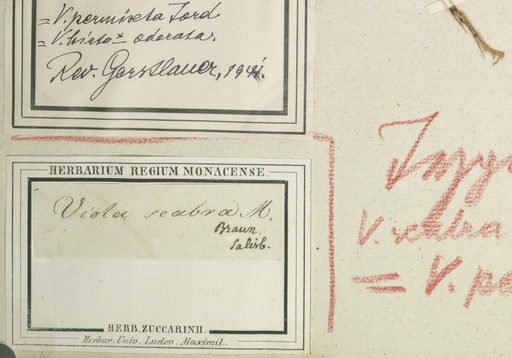 = V. permixta Jord
= V. hirta × odorata.
Rev. Gerstlauer, 1941.
HERBARIUM REGIUM MONACENSE.
Viola scabra M.
Braun.
Salisb.
HERB. ZUCCARINII.
Herbar. Univ. Ludov. Maximil.
V. scabra
= V. pe